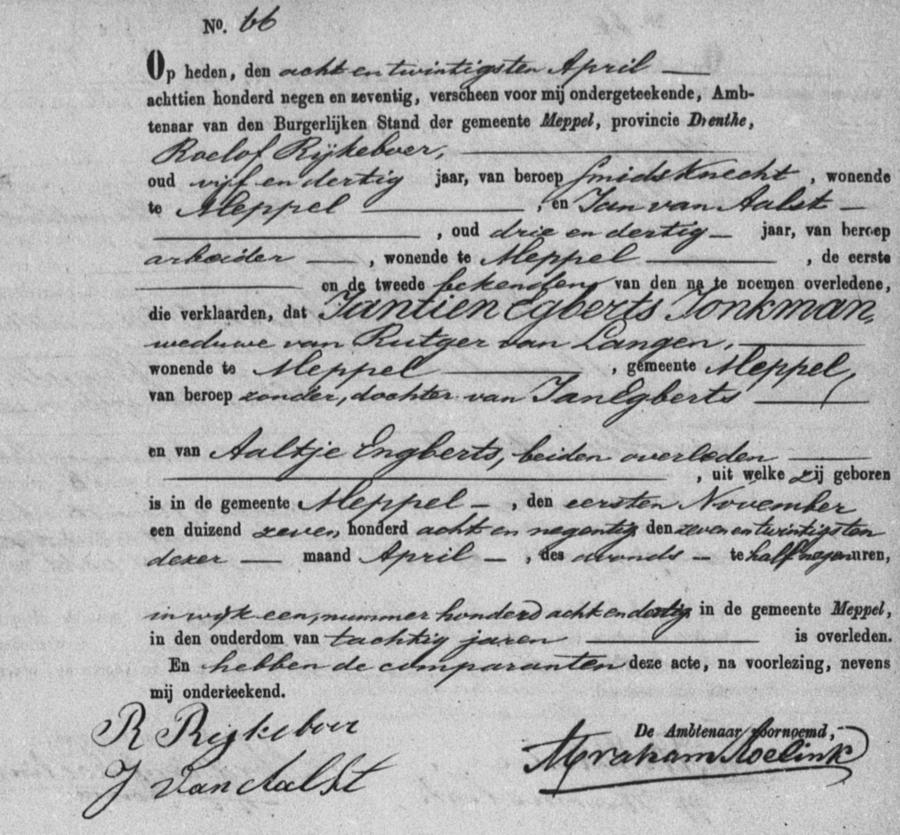 No. 66
Op heden, den acht en twintigsten April
achttien honderd negen en zeventig, verscheen voor mij ondergeteekende, Amb-
tenaar van den Burgerlijken Stand der gemeente Meppel, provincie Drenthe,
Roelof Rijkeboer,
oud vijf en dertig jaar, van beroep smidsknecht, wonende
te Meppel, en Jan van Aalst
, oud drie en dertig jaar, van beroep
arbeider, wonende te Meppel, de eerste
en de tweede bekenden van den na te noemen overledene,
die verklaarden, dat Jantien Egberts Jonkman,
weduwe van Rutger van Langen,
wonende te Meppel, gemeente Meppel,
van beroep zonder, dochter van Jan Egberts
en van Aaltje Engberts, beiden overleden
, uit welke zij geboren
is in de gemeente Meppel, den eersten November
een duizend zeven honderd acht en negentig den zeven en twintigsten
dezer maand April, des avonds te half negen uren,
in wijk een, nummer honderd acht en dertig in de gemeente Meppel,
in den ouderdom van tachtig jaren is overleden.
En hebben de comparanten deze acte, na voorlezing, nevens
mij onderteekend.
R Rijkeboer
De Ambtenaar voornoemd,
J van Aalst
Abraham Roelink